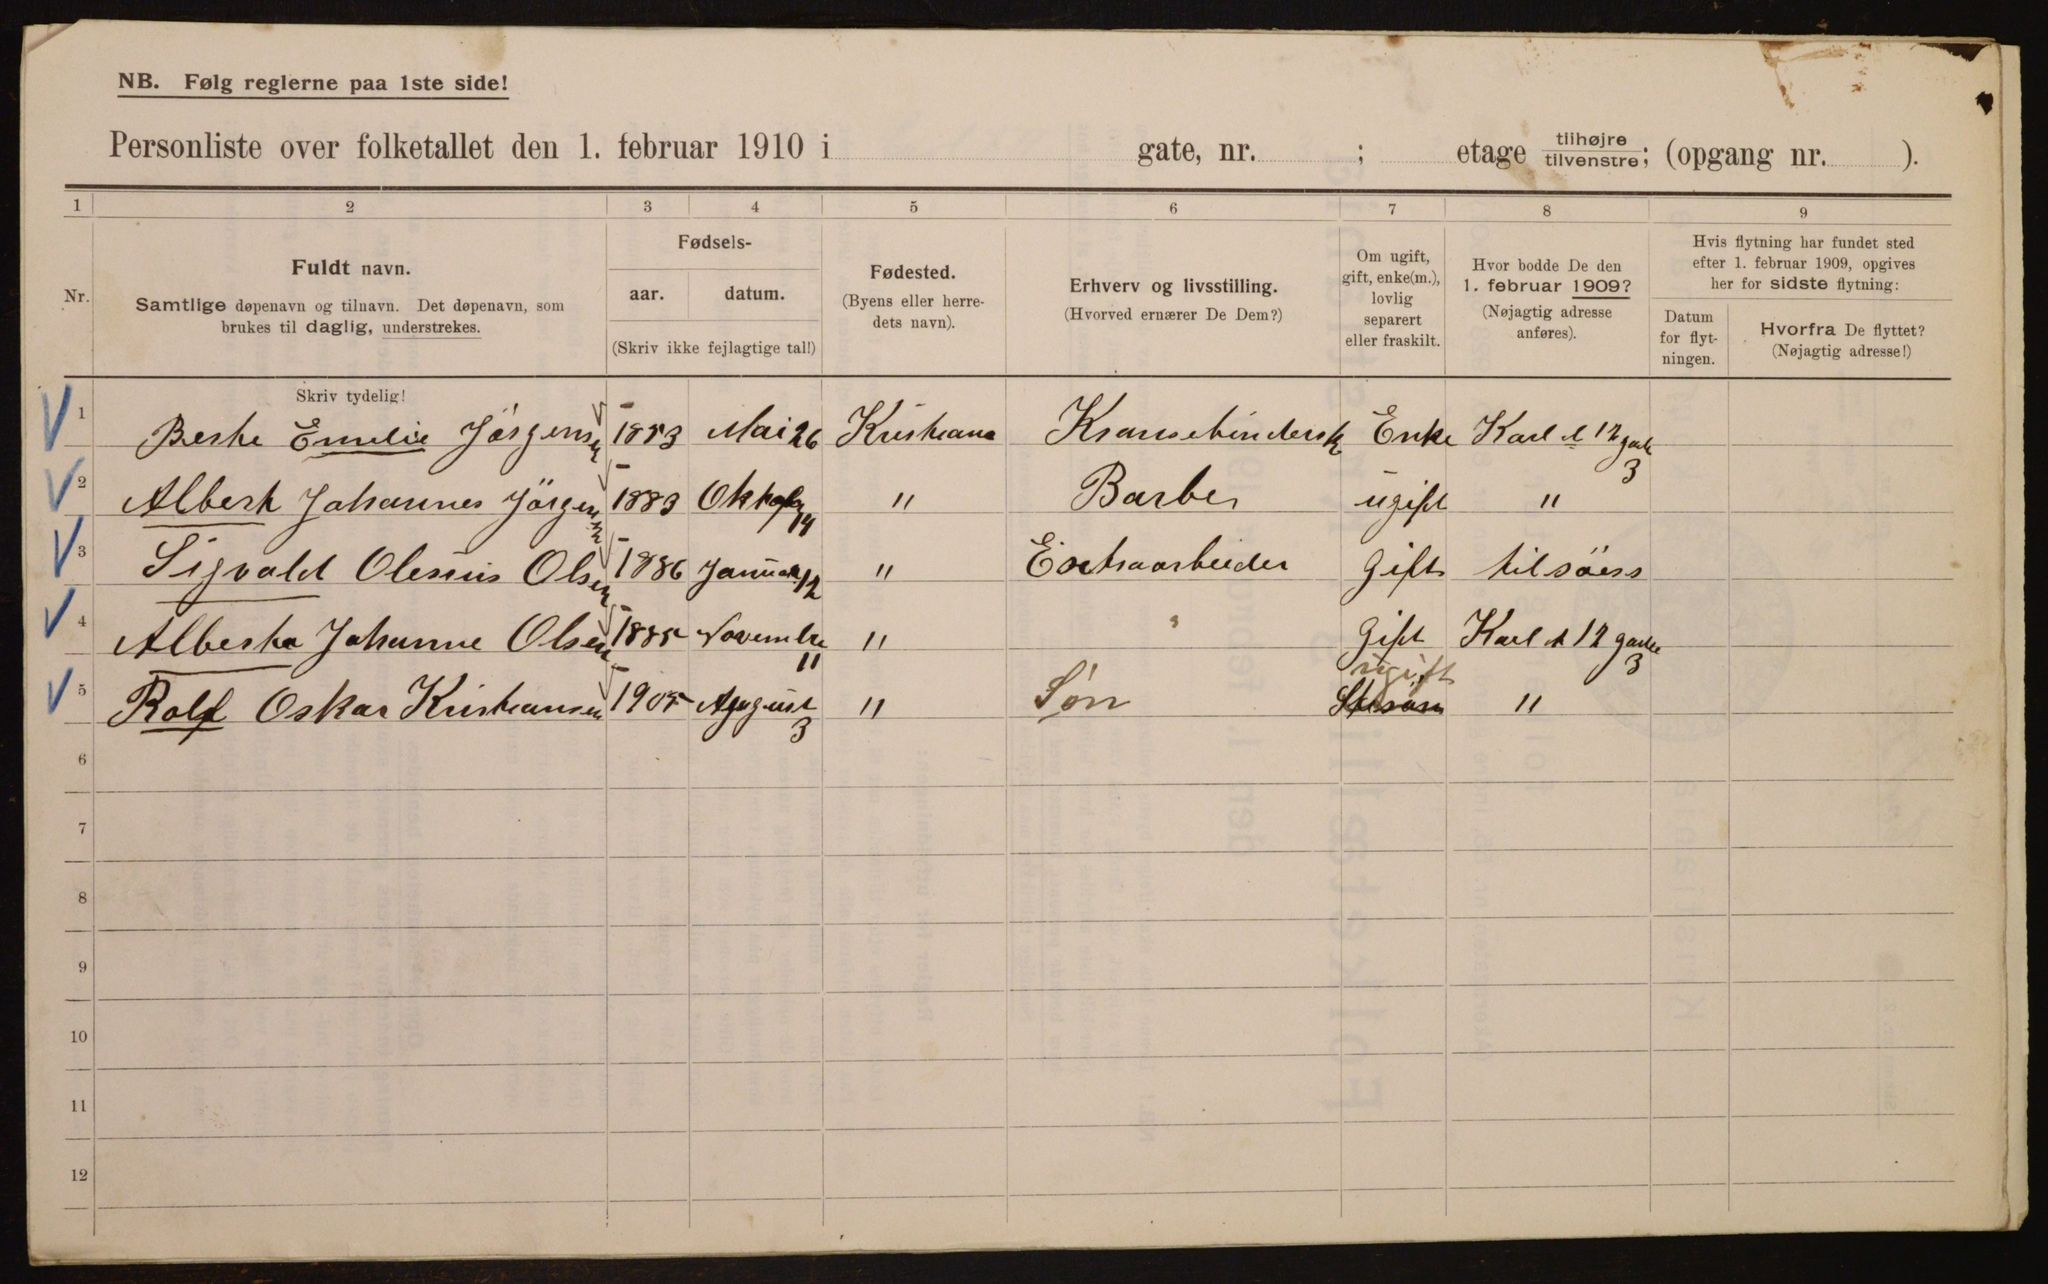 NB. Følg reglerne paa 1ste side!
Personliste over folketallet den 1. februar 1910 i gate, nr. ; etage tilhøjre tilvenstre; (opgang nr. ).
1 2 3 4 5 6 7 8 9
Nr.
Fuldt navn.
Samtlige døpenavn og tilnavn. Det døpenavn, som
brukes til daglig, understrekes.
Fødsels-
aar. datum.
(Skriv ikke fejlagtige tal!)
Fødested.
(Byens eller herre-
dets navn).
Erhverv og livsstilling.
(Hvorved ernærer De Dem?)
Om ugift,
gift, enke(m.),
lovlig
separert
eller fraskilt.
Hvor bodde De den
1. februar 1909?
(Nøjagtig adresse
anføres).
Hvis flytning har fundet sted
efter 1. februar 1909, opgives
her for sidste flytning:
Datum
for flyt-
ningen.
Hvorfra De flyttet?
(Nøjagtig adresse!)
Skriv tydelig!
1 Emelie Jörgensen Mai 26 Kristiana Enke Karl d 12 gade 3
2 Albert Johannes Jörgensen 1883 Oktober 14 " Barber ugift "
3 Sigvald Olesius Olsen 1886 Januar 12 " Extraarbeider Gift tilsöess
4 Alberta Johanne Olsen 1885 November 11 " Gift Karl d 12 gade 3
5 Rolf Oskar Kristiansen 1905 August 3 " Søn ugift "
6
7
8
9
10
11
12